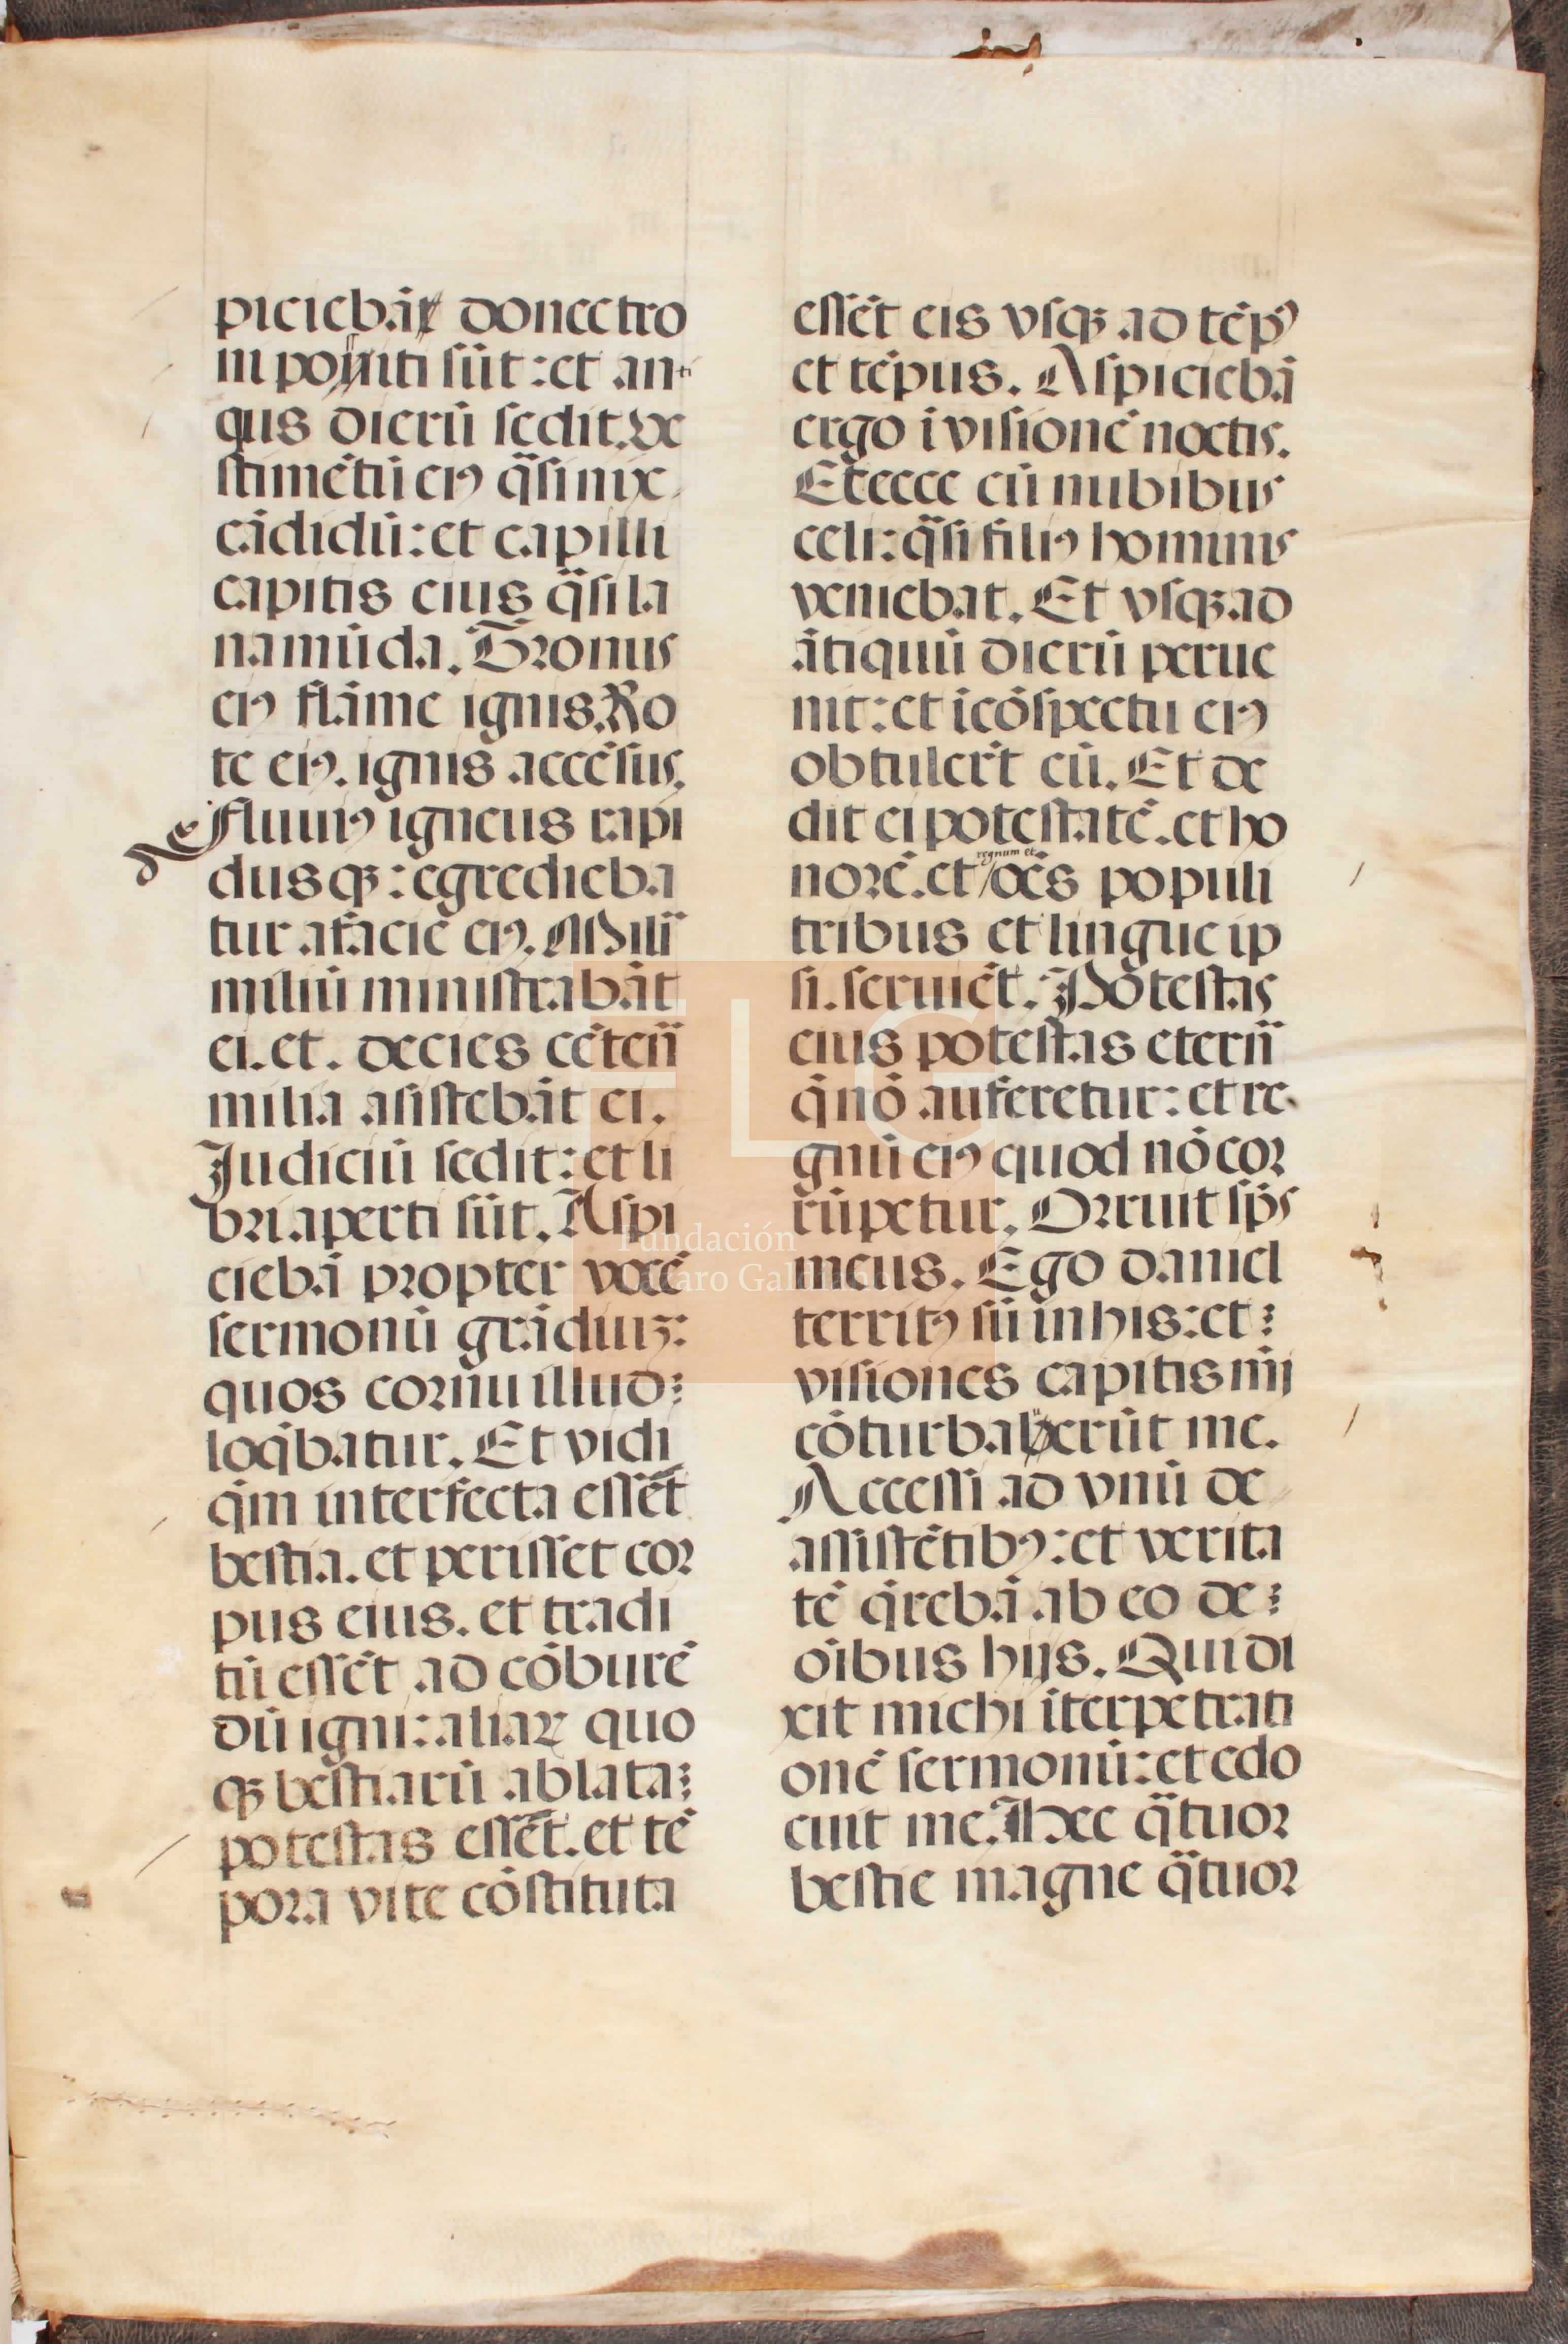 piciebāt donec tro
ni poniti sūt: et an-ti
qus dierū sedit. Ve
stimētū eiꝯ q̄si nix
cādidū: et capilli
capitis eius q̄si la
na mūda. Tronus
eiꝯ flāme ignis. Ro
te eiꝯ. ignis accēsus.
fluuiꝯ igneus rapi
dusqꝫ: egredieba
tur a facie eiꝯ. Mili
miliū ministrabāt
ei. et. decies cēten̄
milia asistebāt ei.
Judiciū sedit: et li
bri aperti sūt. Aspi
ciebā propter vocē
sermonū grādiuꝫ:
quos cornu illud:
loq̄batur. Et vidi
qm̄ interfecta essēt
bestia. et perisset cor
pus eius. et tradi
tū essēt ad cōburē
dū igni: aliaꝝ quo
qꝫ bestiarū ablata:
potestas essēt. et tē
pora vite cōstituta
essēt eis vsqꝫ ad tēpꝯ
et tēpus. Aspiciebā
ergo ī visionē noctis.
Et ecce cū nubibus
celi: q̄si filiꝯ hominis
veniebat. Et vsqꝫ ad
ātiquū dierū perue
nit: et ī cōspectu eiꝯ
obtulert̄ eū. Et de
dit ei potestatē. et ho
norē. et regnum et oēs populi
tribus et lingue ip
si. seruiēt. Potestas
eius potestas etern̄
q̄ nō auferetur: et re
gnū eiꝯ quod nō cor
rūpetur. Orruit sp̄s
meus. Ego daniel
territꝯ sū in his: et:
visiones capitis mij
cōturbaberūt me.
Accessi ad vnū de
assistētibꝯ: et verita
tē q̄rebā ab eo de:
oībus hijs. Qui di
xit michi īterpetrati
onē sermonū: et edo
cuit me. Hec q̄tuor
bestie magne q̄tuor
FLG
Fundación
Lázaro Galdiano